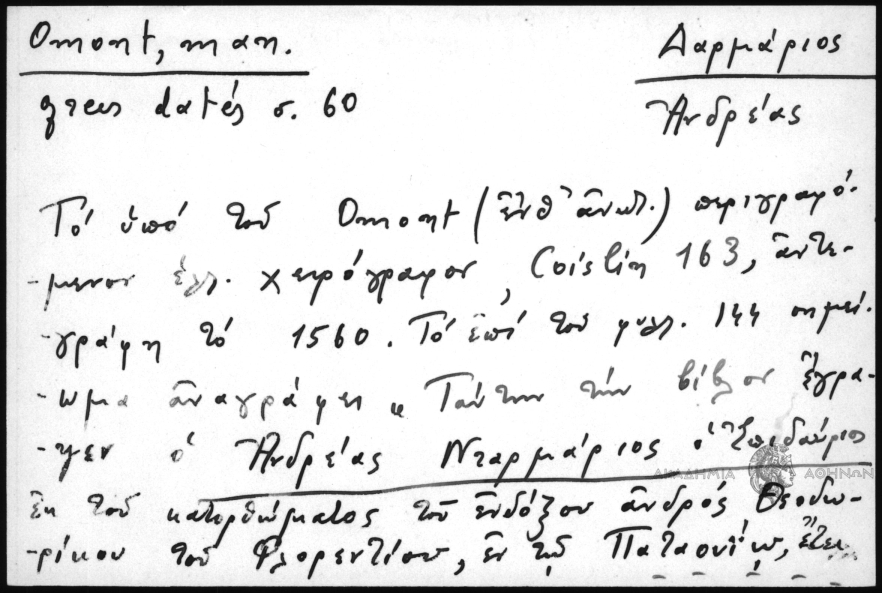 Omont, man.
grecs datés σ. 60
Δαρμάριος
Ἀνδρέας
Τό ὑπό τοῦ Omont (ἔνθ' ἄνωτ.) περιγραφό-
-μενον ἑλλ. χειρόγραφον, Coislin 163, ἀντε-
-γράφη τό 1560. Τό ἐπί τοῦ φυλλ. 144 σημεί-
-ωμα ἀναγράφει " Ταύτην τήν βίβλον ἔγρα-
-ψεν ὁ Ἀνδρέας Νταρμάριος ὁ Ἐπιδαύριος
ἐκ τοῦ κατορθώματος τοῦ ἐνδόξου ἀνδρός Θεοδω-
-ρίκου τοῦ Φλορεντίου, ἐν τῷ Παταουίῳ, ἔτει
ΑΚΑΔΗΜΙΑ ΑΘΗΝΩΝ